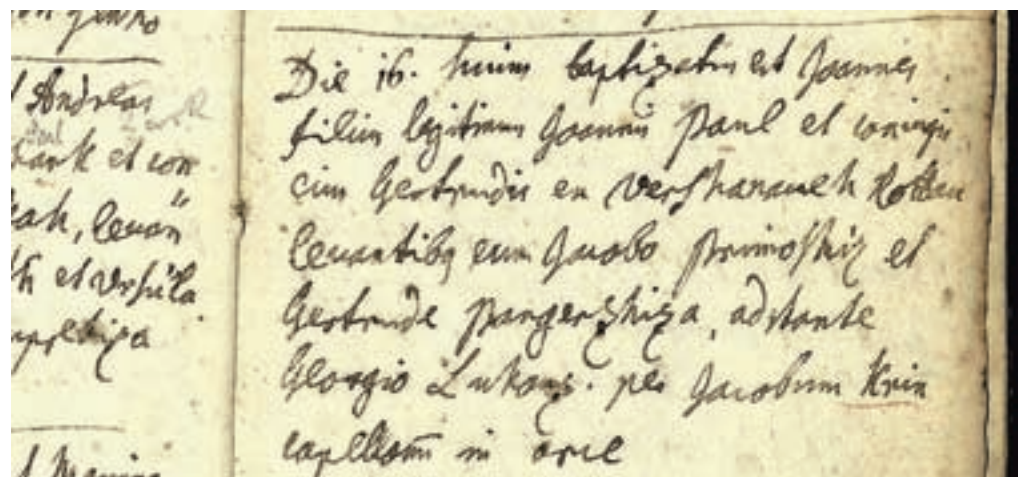 Andreas
et con
ak, levan
et Ursula
Die 16. huius baptizatus est Joannes
filius legitimus Joannis Paul et coniugis
eius Gertrudis ex Vershanaueh
levantibq eum Jacobo Primoshiz et
Gertrude Pangershiza, adstante
Georgio Lukanz. per Jacobum Krin
capellanū in arce